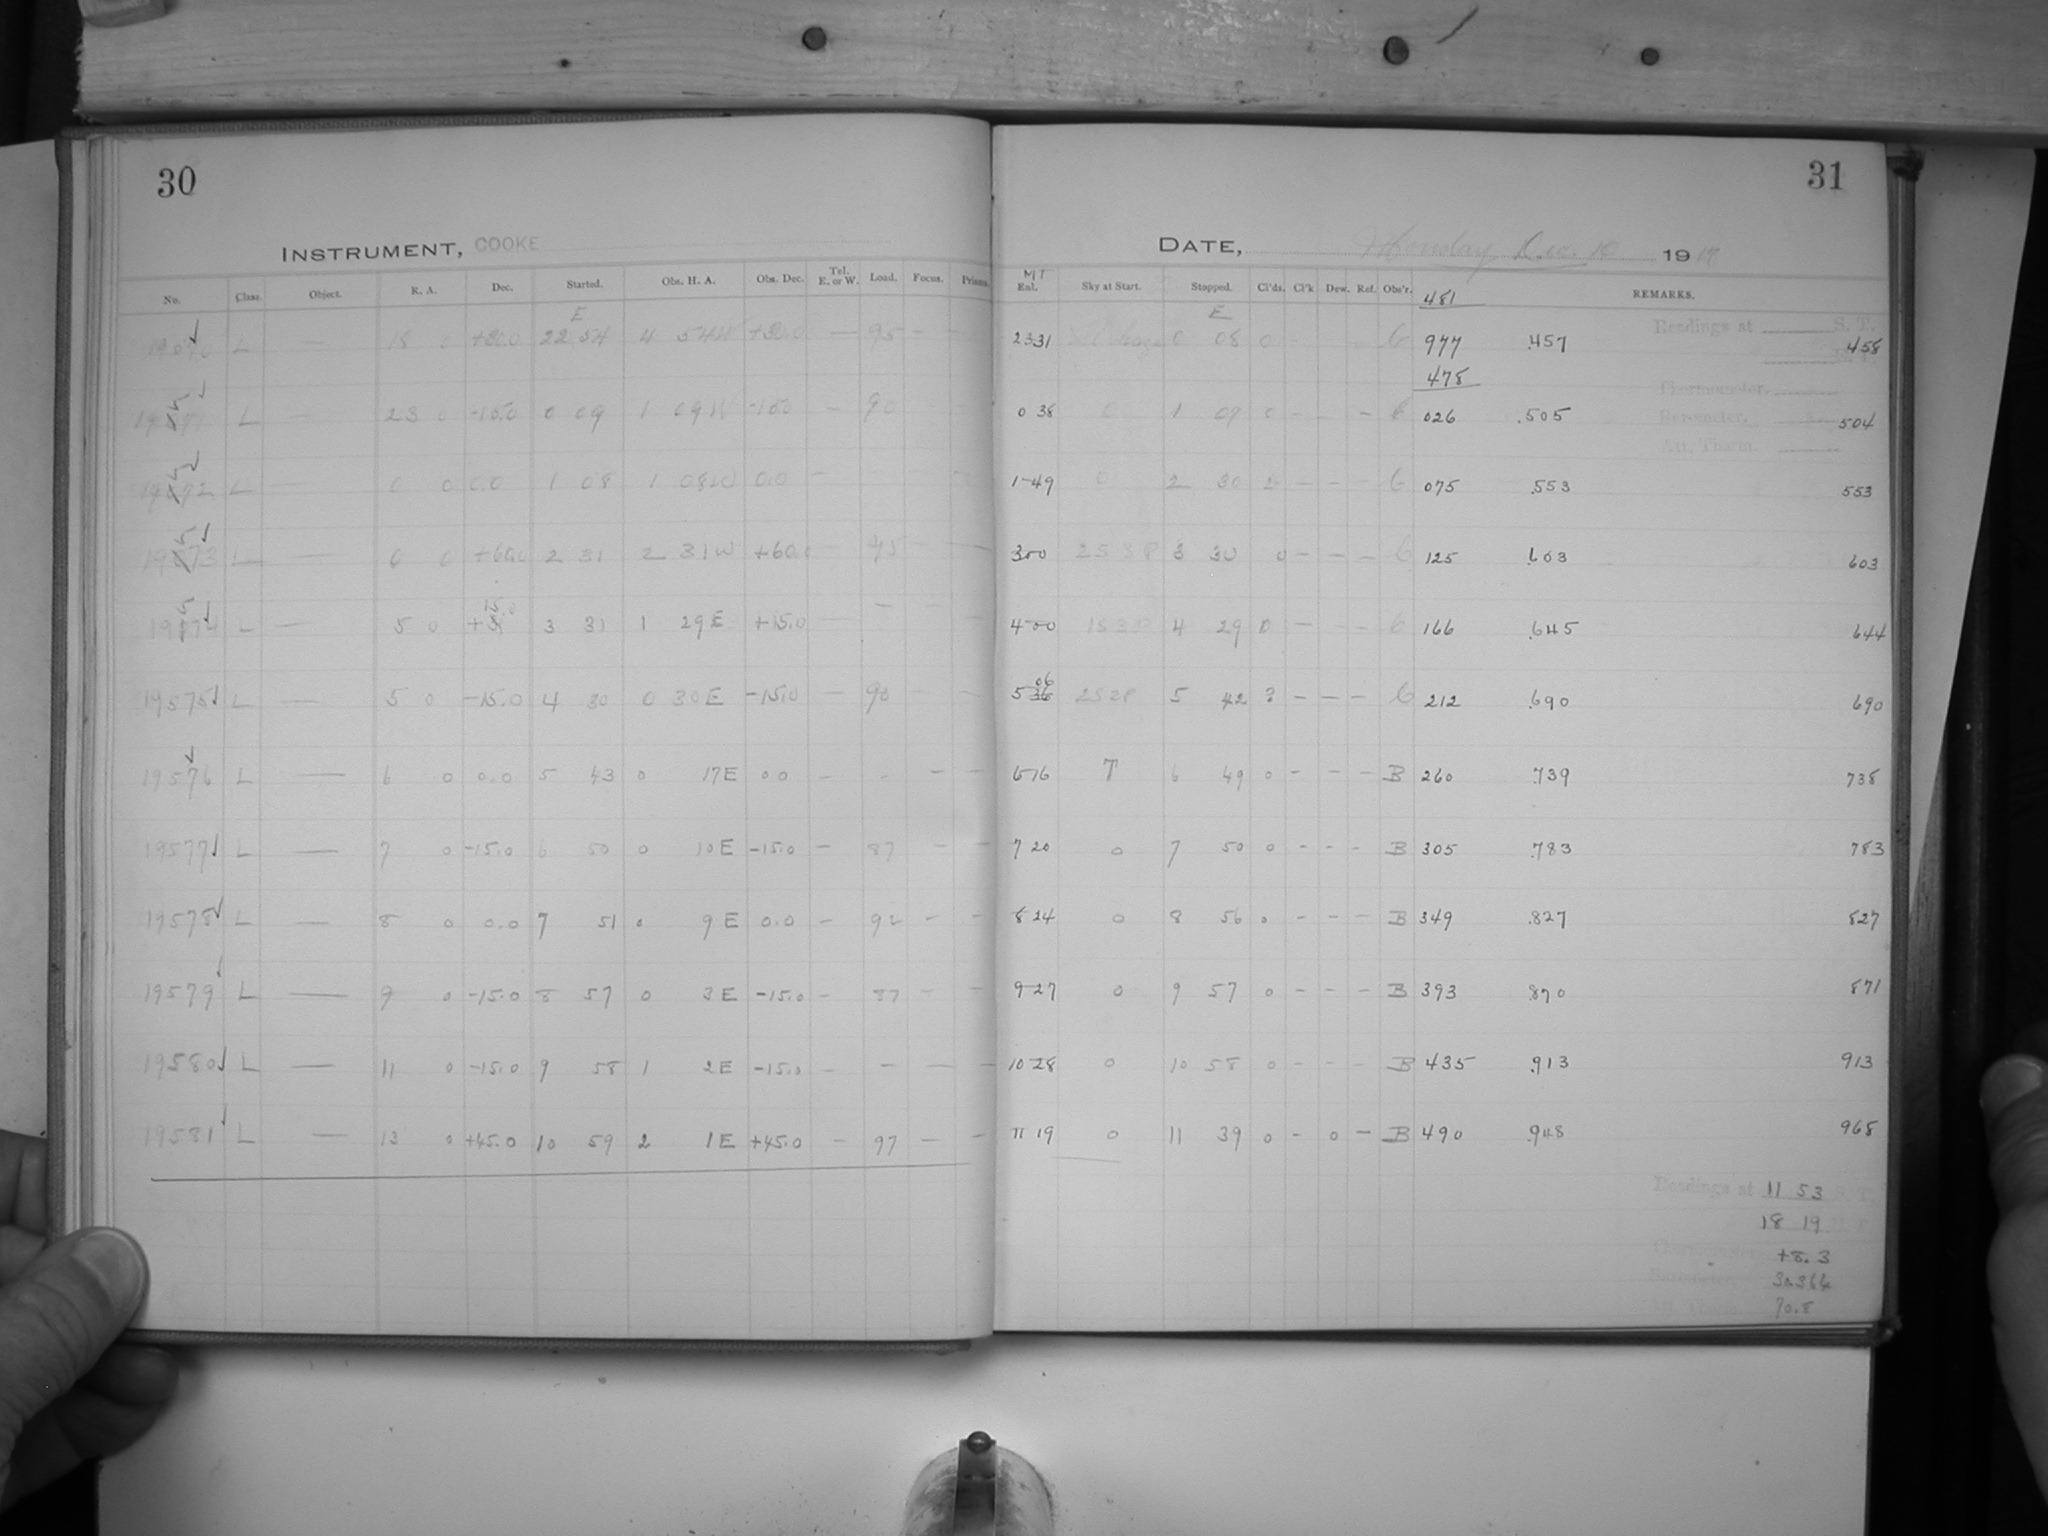 30
31
INSTRUMENT, COOKE
DATE, Monday Dec. 10 1917
No. Class. Object. R. A. Dec. Started. Obs. H. A. Obs. Dec. Tel. E. or W. Load. Focus. Prisms. MT Eal. Sky at Start. Stopped. Cl'ds. Cl'k Dew. Ref. Obs'r. 481 REMARKS.
E E
L — 18 0 +30.0 22 54 4 54W +30.0 — 95 — 23 31 0 08 0 — — 6 977 .457 458
Readings at S. T.
478
Thermometer.
L — 23 0 -15.0 0 09 1 09W -15.0 — 90 0 38 0 1 07 0 — — — 6 026 .505 504
Barometer.
Att. Therm.
L — 0 0 0.0 1 08 1 08W 0.0 — 1-49 0 2 30 — — — 6 075 .553 553
L — 0 0 +60.0 2 31 2 31W +60.0 — 45 — — 3 00 3 30 0 — — — 6 125 .603 603
15.0
L — 5 0 3 31 1 29E +15.0 — — — 4-00 4 29 0 — — — 6 166 .645 644
06
19575 L — 5 0 -15.0 4 30 0 30E -15.0 — 90 — — 5 36 5 42 ? — — — 6 212 .690 690
19576 L — 6 0 0.0 5 43 0 17E 0.0 — - — — 6 16 T 6 49 0 — — — B 260 .739 738
19577 L — 7 0 -15.0 6 50 0 10E -15.0 — 87 — — 7 20 0 7 50 0 - - - B 305 .783 783
19578 L — 8 0 0.0 7 51 0 9E 0.0 — 92 — — 8 24 0 8 56 0 — — — B 349 .827 827
19579 L — 9 0 -15.0 8 57 0 3E -15.0 — 87 — — 9-27 0 9 57 0 — — — B 393 .870 871
19580 L — 11 0 -15.0 9 58 1 2E -15.0 — — — — 10 28 0 10 58 0 — — — B 435 .913 913
19581 L — 13 0 +45.0 10 59 2 1E +45.0 — 97 — — 11 19 0 11 39 0 - 0 — B 490 .948 968
Readings at 11 53 S. T.
18 19
Thermometer. +8.3
Barometer. 30.364
Att. Therm. 70.8